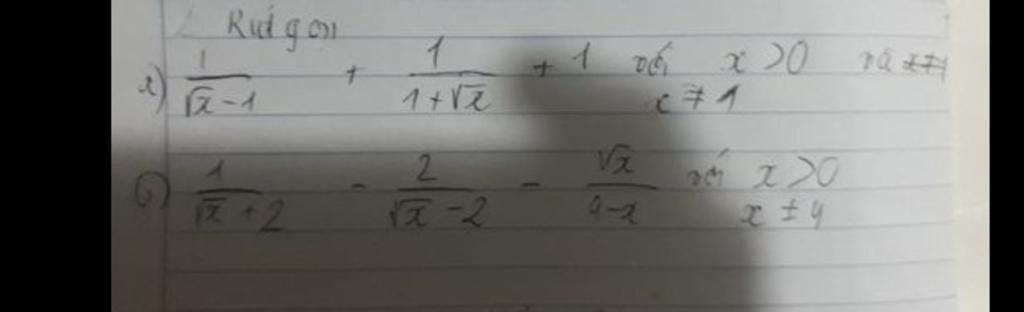 Rút gọn
a) 1/(√x - 1) + 1/(1 + √x) + 1 với x > 0 và
x ≠ 1
b) 1/(√x + 2) - 2/(√x - 2) - √x/(4 - x) với x > 0
x ± 4